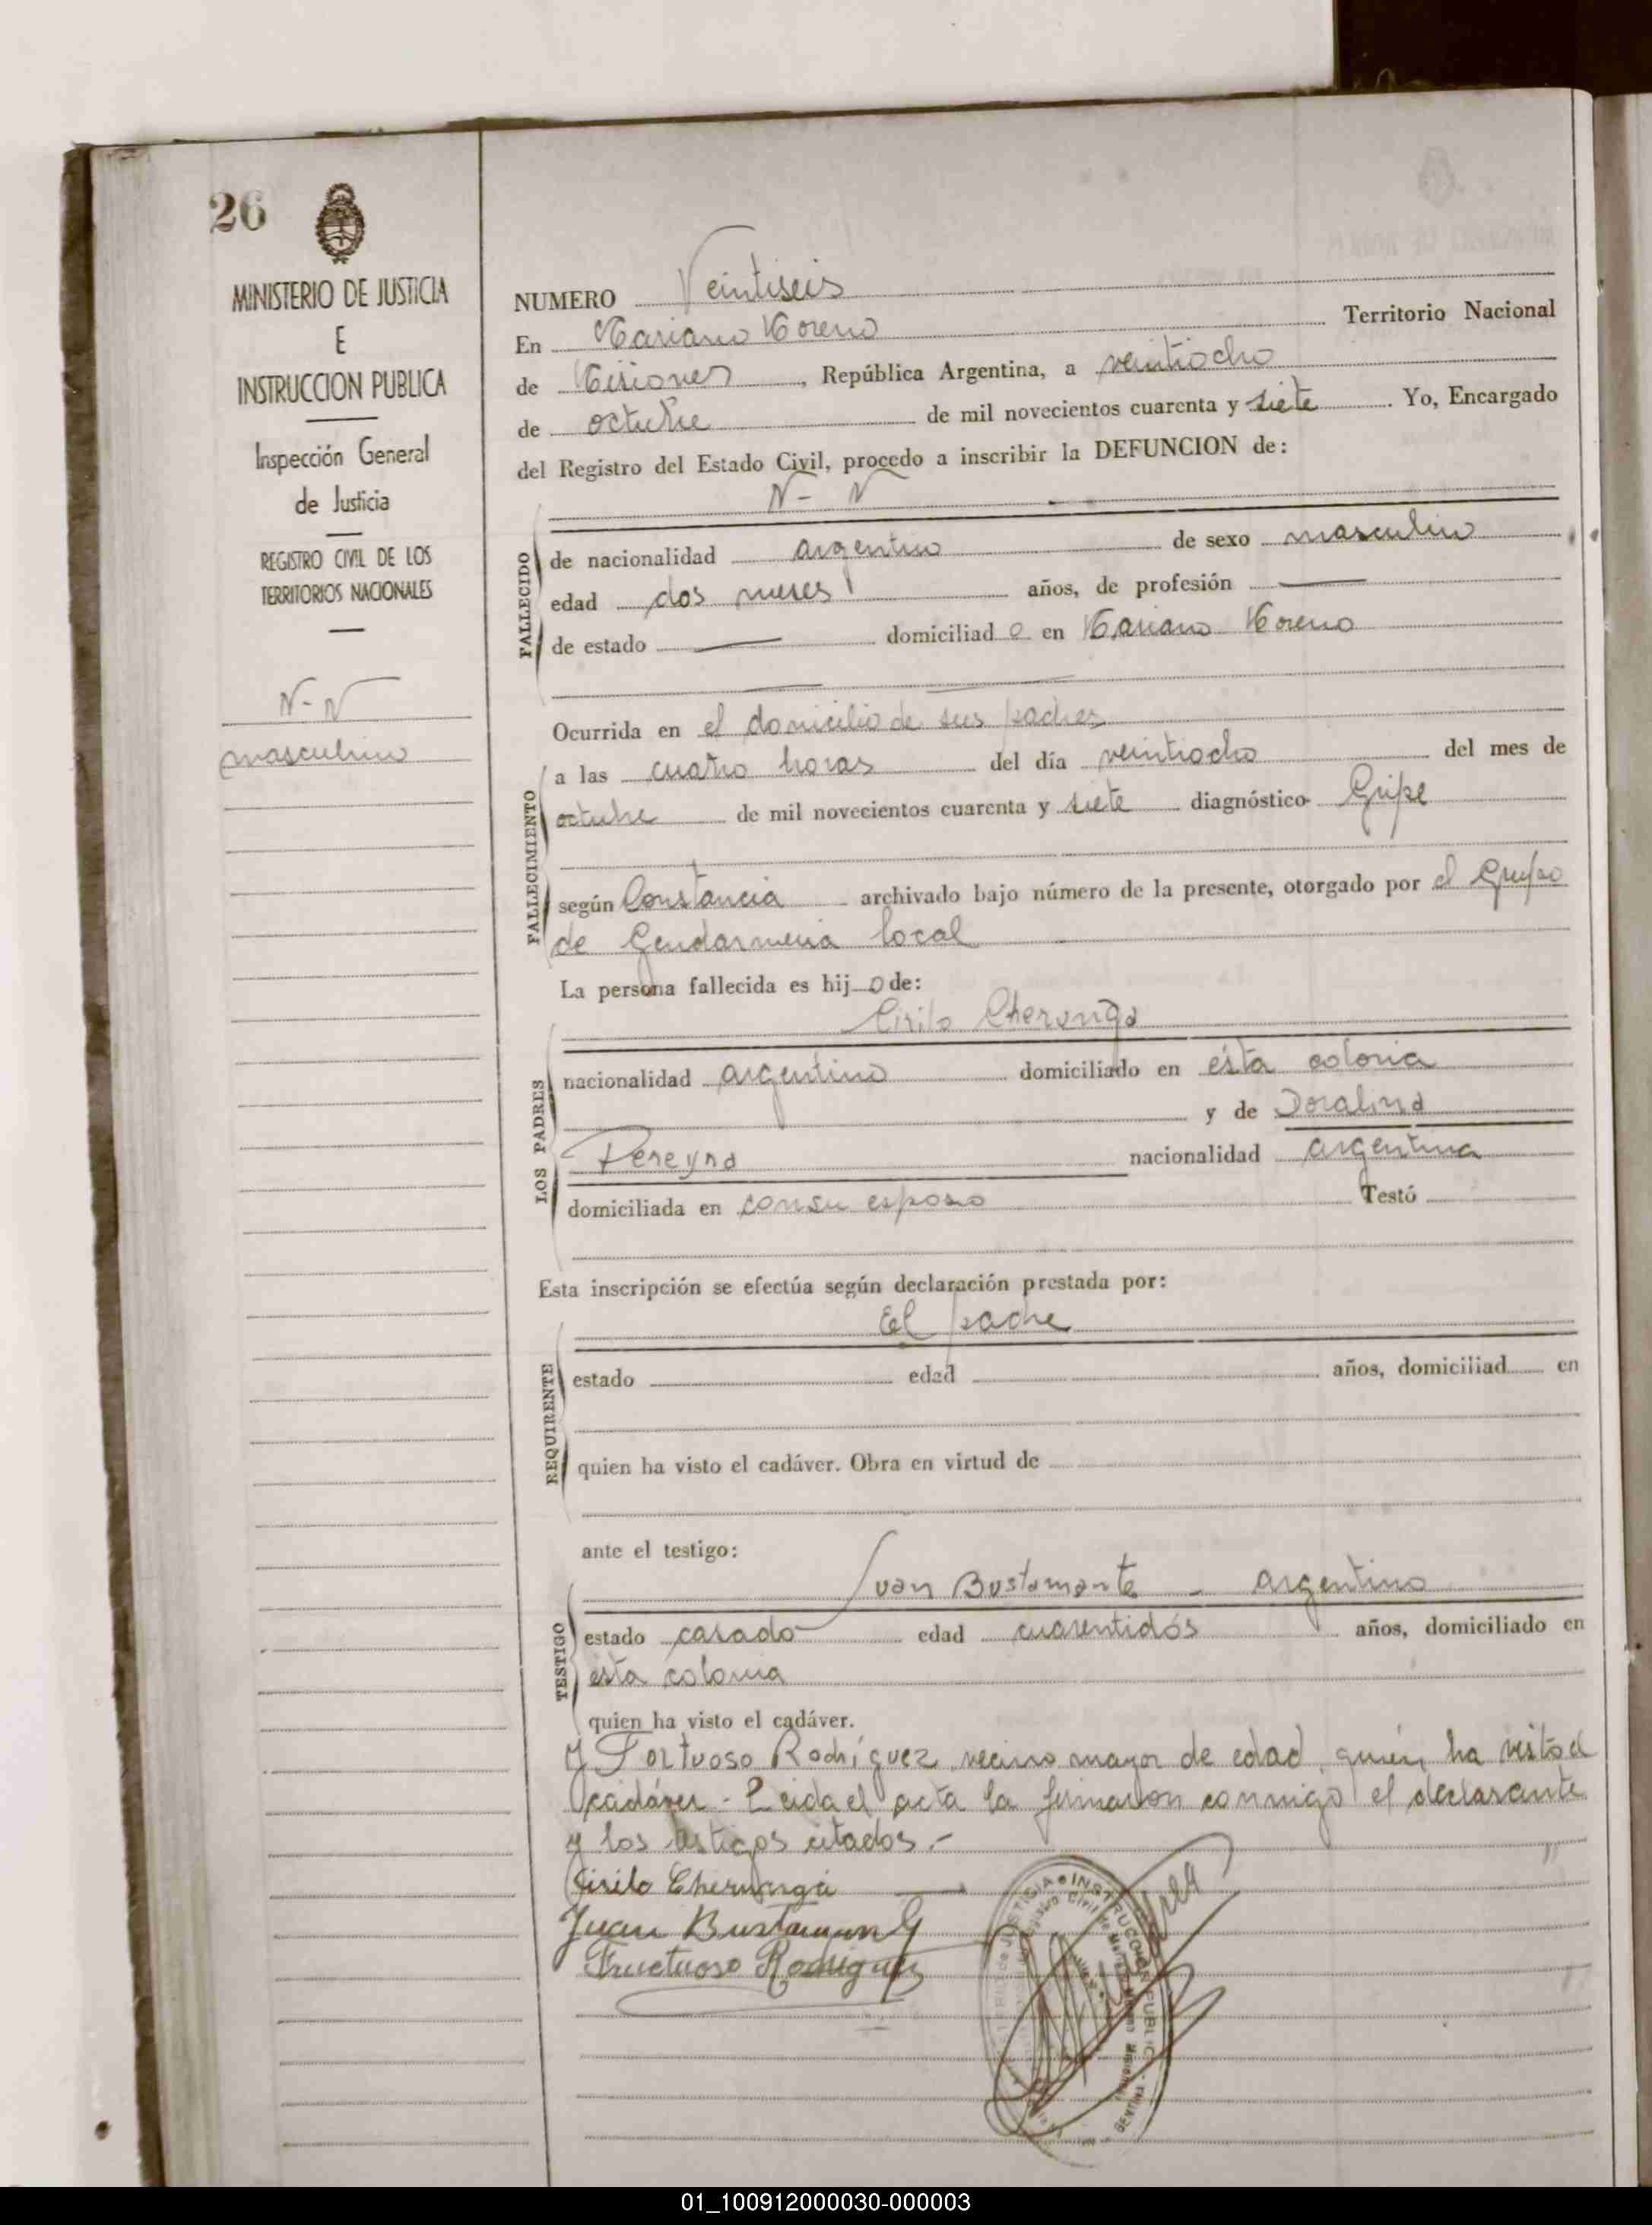 26
MINISTERIO DE JUSTICIA
E
INSTRUCCION PUBLICA
Inspección General
de Justicia
REGISTRO CIVIL DE LOS
TERRITORIOS NACIONALES
N-N
masculino
NUMERO Veintiseis
En Mariano Moreno Territorio Nacional
de Misiones, República Argentina, a veintiocho
de octubre de mil novecientos cuarenta y siete. Yo, Encargado
del Registro del Estado Civil, procedo a inscribir la DEFUNCION de:
N- N
FALLECIDO
de nacionalidad argentino de sexo masculino
edad dos meses años, de profesión —
de estado — domiciliado en Mariano Moreno
Ocurrida en el domicilio de sus padres
FALLECIMIENTO
a las cuatro horas del día veintiocho del mes de
octubre de mil novecientos cuarenta y siete diagnóstico Gripe
según Constancia archivado bajo número de la presente, otorgado por el Grupo
de Gendarmeria local
La persona fallecida es hijo de:
LOS PADRES
Cirilo
nacionalidad argentino domiciliado en ésta colonia
y de Doralina
Pereyra nacionalidad argentina
domiciliada en con su esposo Testó
Esta inscripción se efectúa según declaración prestada por:
REQUIRENTE
El padre
estado edad años, domiciliad en
quien ha visto el cadáver. Obra en virtud de
ante el testigo:
TESTIGO
Juan Bustamante - argentino
estado casado edad cuarentidós años, domiciliado en
ésta colonia
quien ha visto el cadáver.
y Rodríguez, vecino mayor de edad, quién ha visto el
cadáver - Leida el acta la firmaron conmigo el declarante
y los testigos citados.-
Cirilo
Juan Bustamante
Fructuoso Rodriguez
JUSTICIA • INSTRUCCION PUBLICA
Registro Civil de
01_100912000030-000003